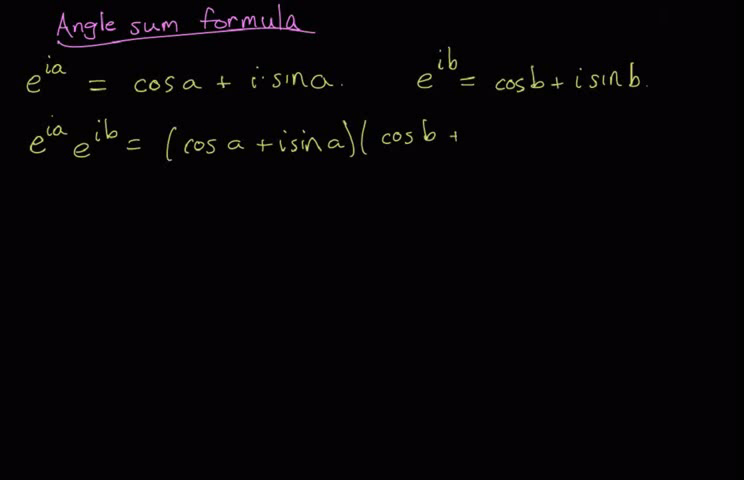 Angle sum formula
e^{ia} = cos a + i·sin a. e^{ib} = cos b + i sin b.
e^{ia} e^{ib} = (cos a + i sin a)( cos b +